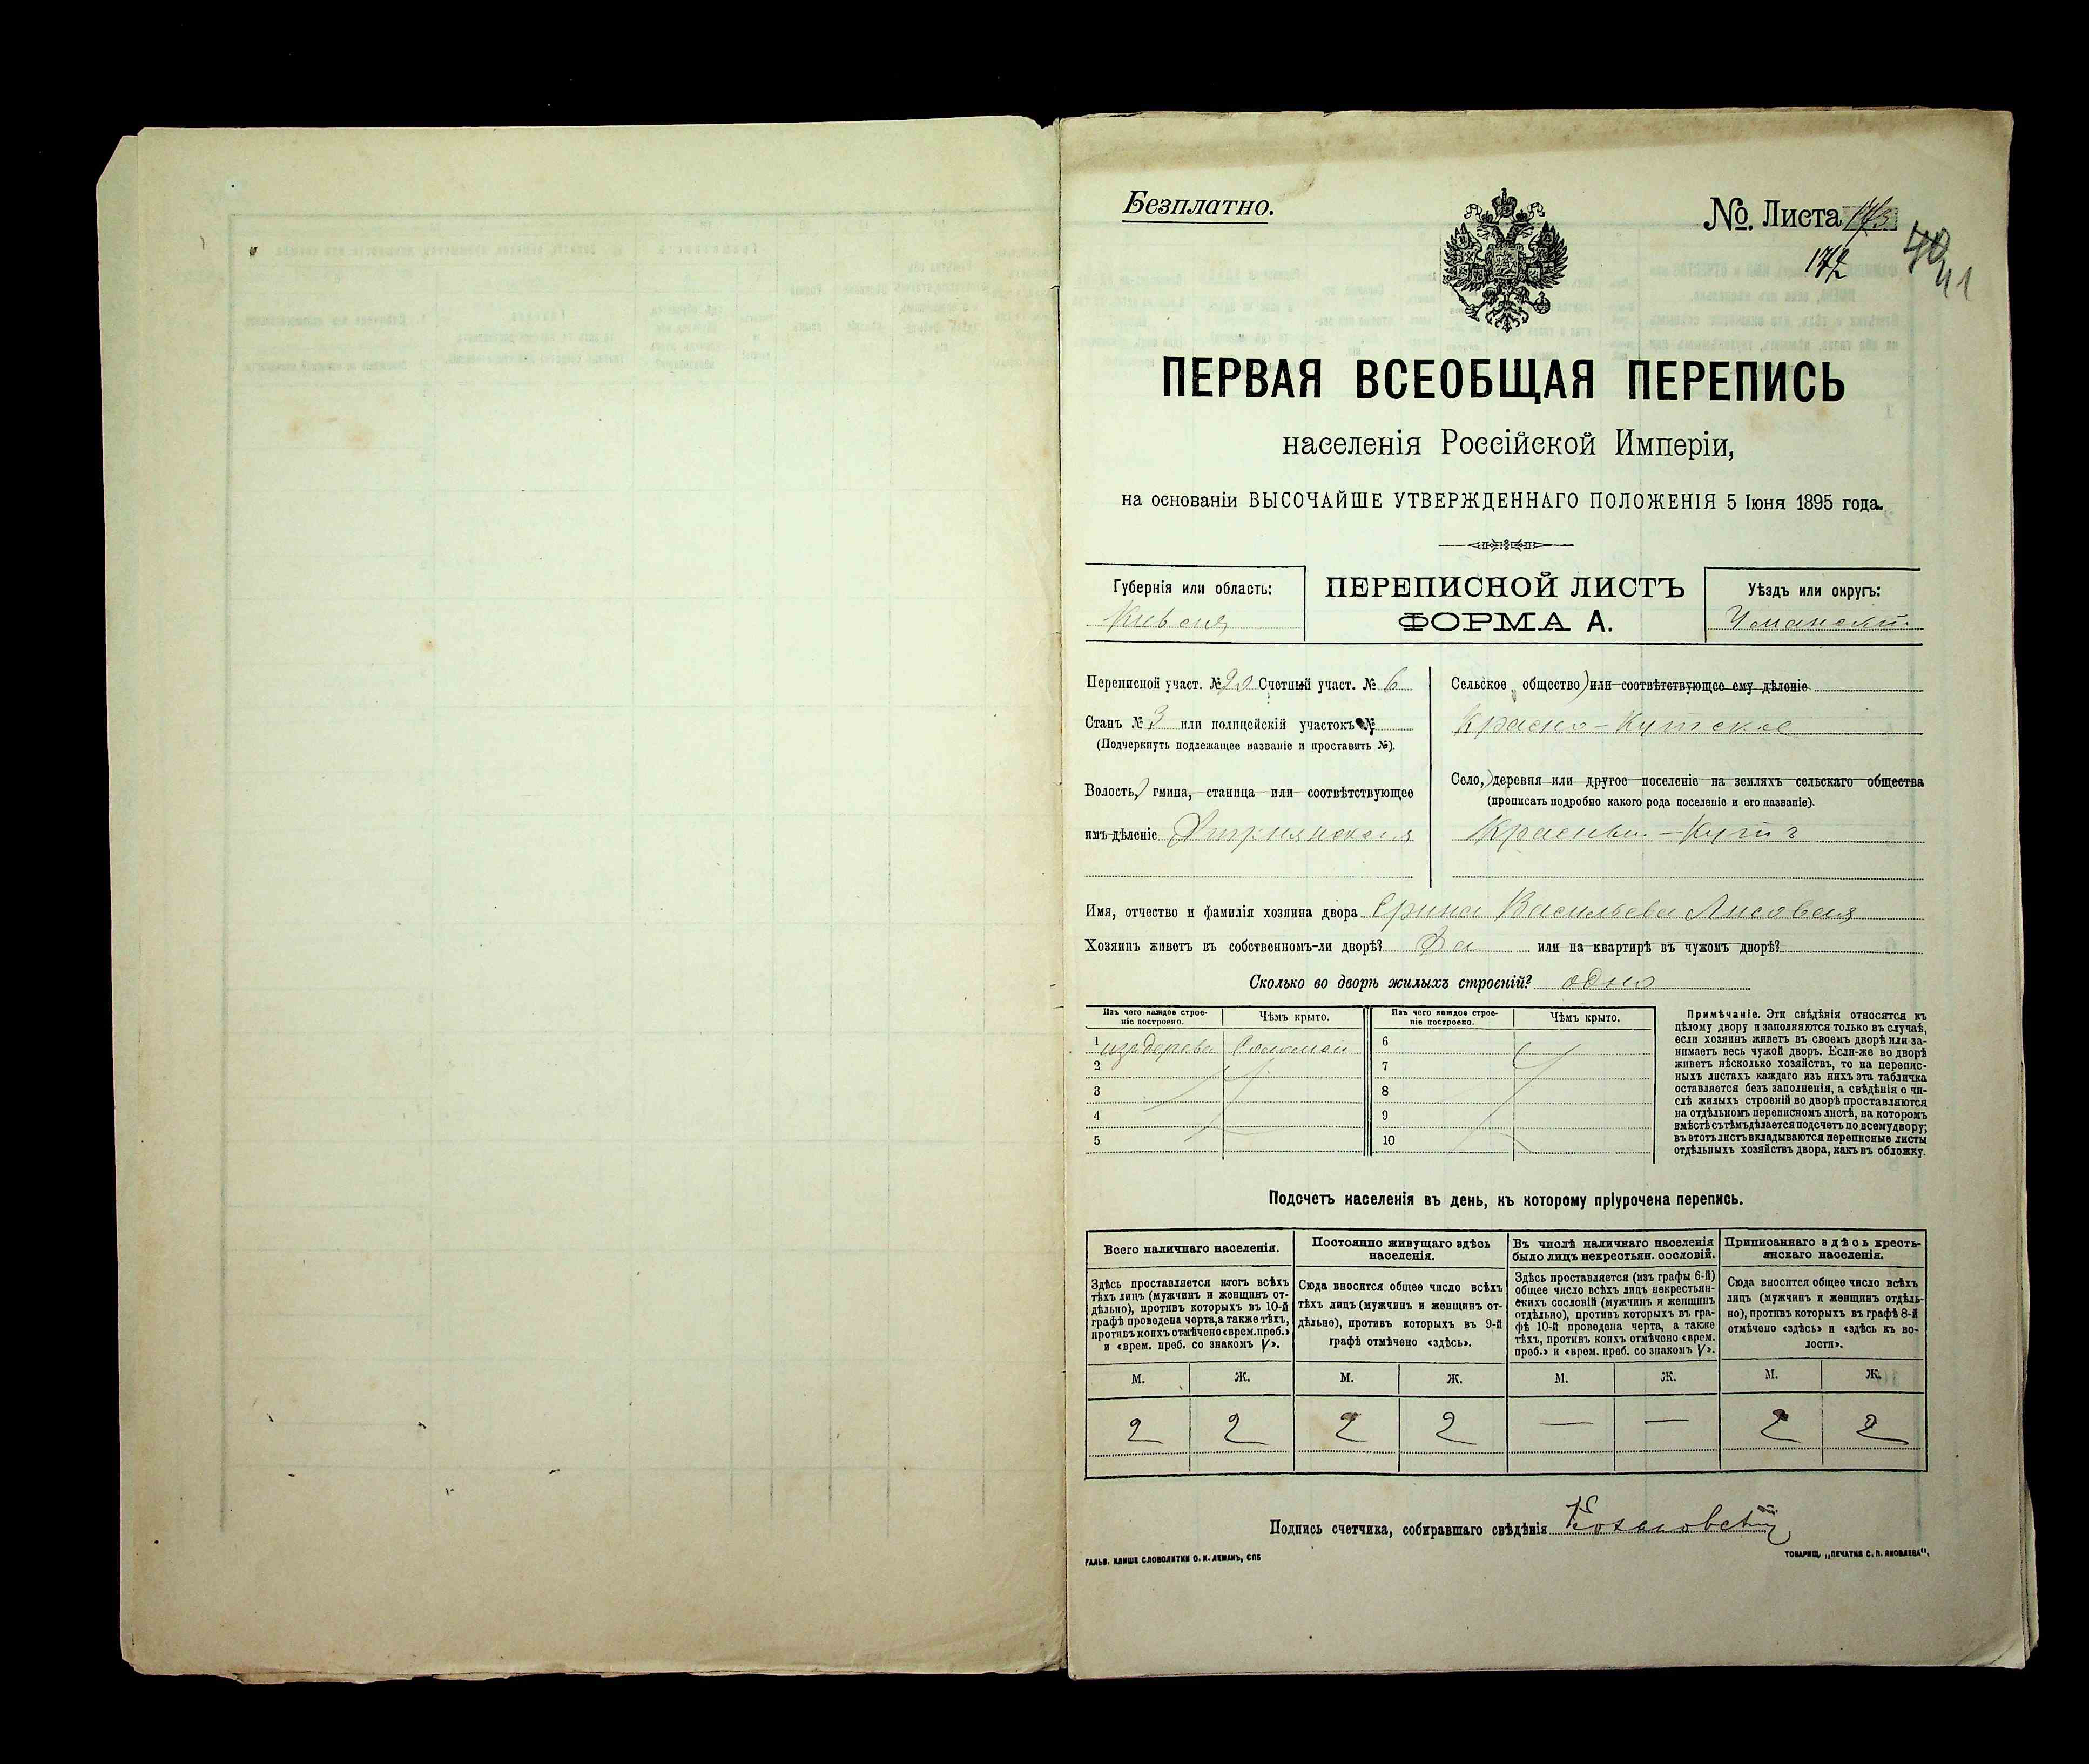 Безплатно.
№ Листа
172
40
41
ПЕРВАЯ ВСЕОБЩАЯ ПЕРЕПИСЬ
населенія Россійской Имперіи,
на основаніи ВЫСОЧАЙШЕ УТВЕРЖДЕННАГО ПОЛОЖЕНІЯ 5 Іюня 1895 года.
Губернія или область:
ПЕРЕПИСНОЙ ЛИСТЪ
ФОРМА А.
Уѣздъ или округъ:
Уманскій
Переписной участ. № 20 Счетный участ. № 6
Станъ № 3 или полицейскій участокъ №
(Подчеркнуть подлежащее названіе и проставить №).
Волость, гмина, станица или соотвѣтствующее
имъ дѣленіе
Сельское общество) или соотвѣтствующее ему дѣленіе
Красно-Кутское
Село,) деревня или другое поселеніе на земляхъ сельскаго общества
(прописать подробно какого рода поселеніе и его названіе).
Красный-Кутъ
Имя, отчество и фамилія хозяина двора Ирина Васильева Лисовая
Хозяинъ живетъ въ собственномъ-ли дворѣ? Да или на квартирѣ въ чужомъ дворѣ?
Сколько во дворѣ жилыхъ строеній? одно
Изъ чего каждое строе-
ніе построено.
Чѣмъ крыто.
Изъ чего каждое строе-
ніе построено.
Чѣмъ крыто.
1 изъ дерева Соломой 6
2 7
3 8
4 9
5 10
Примѣчаніе. Эти свѣдѣнія относятся къ
цѣлому двору и заполняются только въ случаѣ,
если хозяинъ живетъ въ своемъ дворѣ или за-
нимаетъ весь чужой дворъ. Если-же во дворѣ
живетъ нѣсколько хозяйствъ, то на перепис-
ныхъ листахъ каждаго изъ нихъ эта табличка
оставляется безъ заполненія, а свѣдѣнія о чи-
слѣ жилыхъ строеній во дворѣ проставляются
на отдѣльномъ переписномъ листѣ, на которомъ
вмѣстѣ съ тѣмъ дѣлается подсчетъ по всему двору;
въ этотъ листъ вкладываются переписные листы
отдѣльныхъ хозяйствъ двора, какъ въ обложку.
Подсчетъ населенія въ день, къ которому пріурочена перепись.
Всего наличнаго населенія.
Здѣсь проставляется итогъ всѣхъ
тѣхъ лицъ (мужчинъ и женщинъ от-
дѣльно), противъ которыхъ въ 10-й
графѣ проведена черта, а также тѣхъ,
противъ коихъ отмѣчено «врем. преб.»
и «врем. преб. со знакомъ V».
Постоянно живущаго здѣсь
населенія.
Сюда вносится общее число всѣхъ
тѣхъ лицъ (мужчинъ и женщинъ от-
дѣльно), противъ которыхъ въ 9-й
графѣ отмѣчено «здѣсь».
Въ числѣ наличнаго населенія
было лицъ некрестьян. сословій.
Здѣсь проставляется (изъ графы 6-й)
общее число всѣхъ лицъ некрестьян-
скихъ сословій (мужчинъ и женщинъ
отдѣльно), противъ которыхъ въ гра-
фѣ 10-й проведена черта, а также
тѣхъ, противъ коихъ отмѣчено «врем.
преб.» и «врем. преб. со знакомъ V».
Приписаннаго здѣсь кресть-
янскаго населенія.
Сюда вносится общее число всѣхъ
лицъ (мужчинъ и женщинъ отдѣль-
но), противъ которыхъ въ графѣ 8-й
отмѣчено «здѣсь» и «здѣсь къ во-
лости».
М. Ж. М. Ж. М. Ж. М. Ж.
2 2 2 2 — — 2 2
Подпись счетчика, собиравшаго свѣдѣнія
ГАЛЬВ. КЛИШЕ СЛОВОЛИТНИ О. И. ЛЕМАНЪ, СПБ
ТОВАРИЩ. „ПЕЧАТНЯ С. П. ЯКОВЛЕВА“.